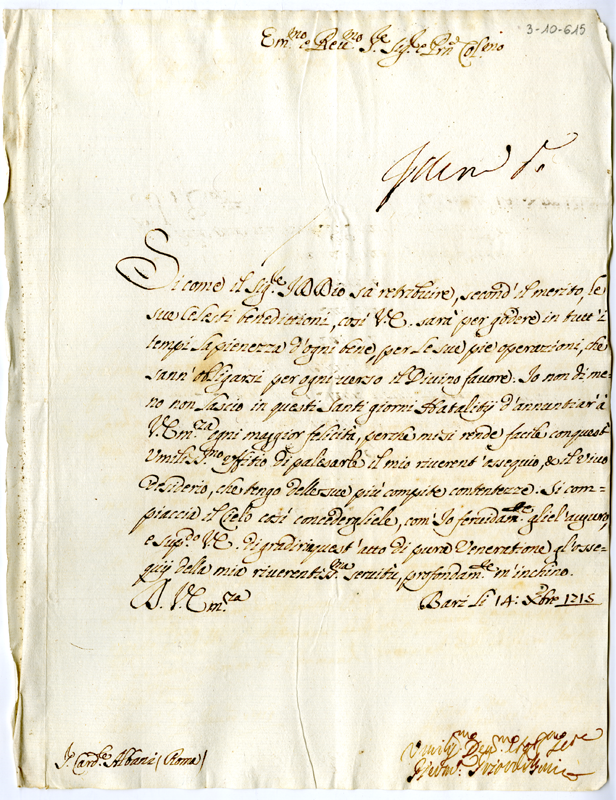 3-10-615
Em.mo e Reu.mo S.re Sig.re e Prn̄ Col.mo
Si come il Sig.re IDDio sà retribuire, second'il merito, le
sue Celesti benedittioni, così V.E. sarà per godere in tutt'i
tempi la pienezza d'ogni bene, per le sue pie operazioni, che
sann'obligarsi per ogni verso il Divino favore. Io non di me-
no non lascio in questi Santi giorni Natalitij d'annuntiar'à
V.Em.za ogni maggior felicità, perche mi si rende facile con quest'
Umiliss.mo offitio di palesarle il mio riverent'ossequio, & il vivo
desiderio, che tengo delle sue più compite contentezze. Si com-
piaccia il Cielo così concedergliele, com'Io feruidam.te gliel'auguro
e supp.o V.E. di gradir in quest'atto di pura Veneratione gl'osse-
quij della mia riverentiss.ma servitù, profondam.te m'inchino.
D. V. Em.za
Bari li 14: Xbre 1715
S. Card.e Albani (Roma)
Umiliss.mo Deu.mo Obl.mo